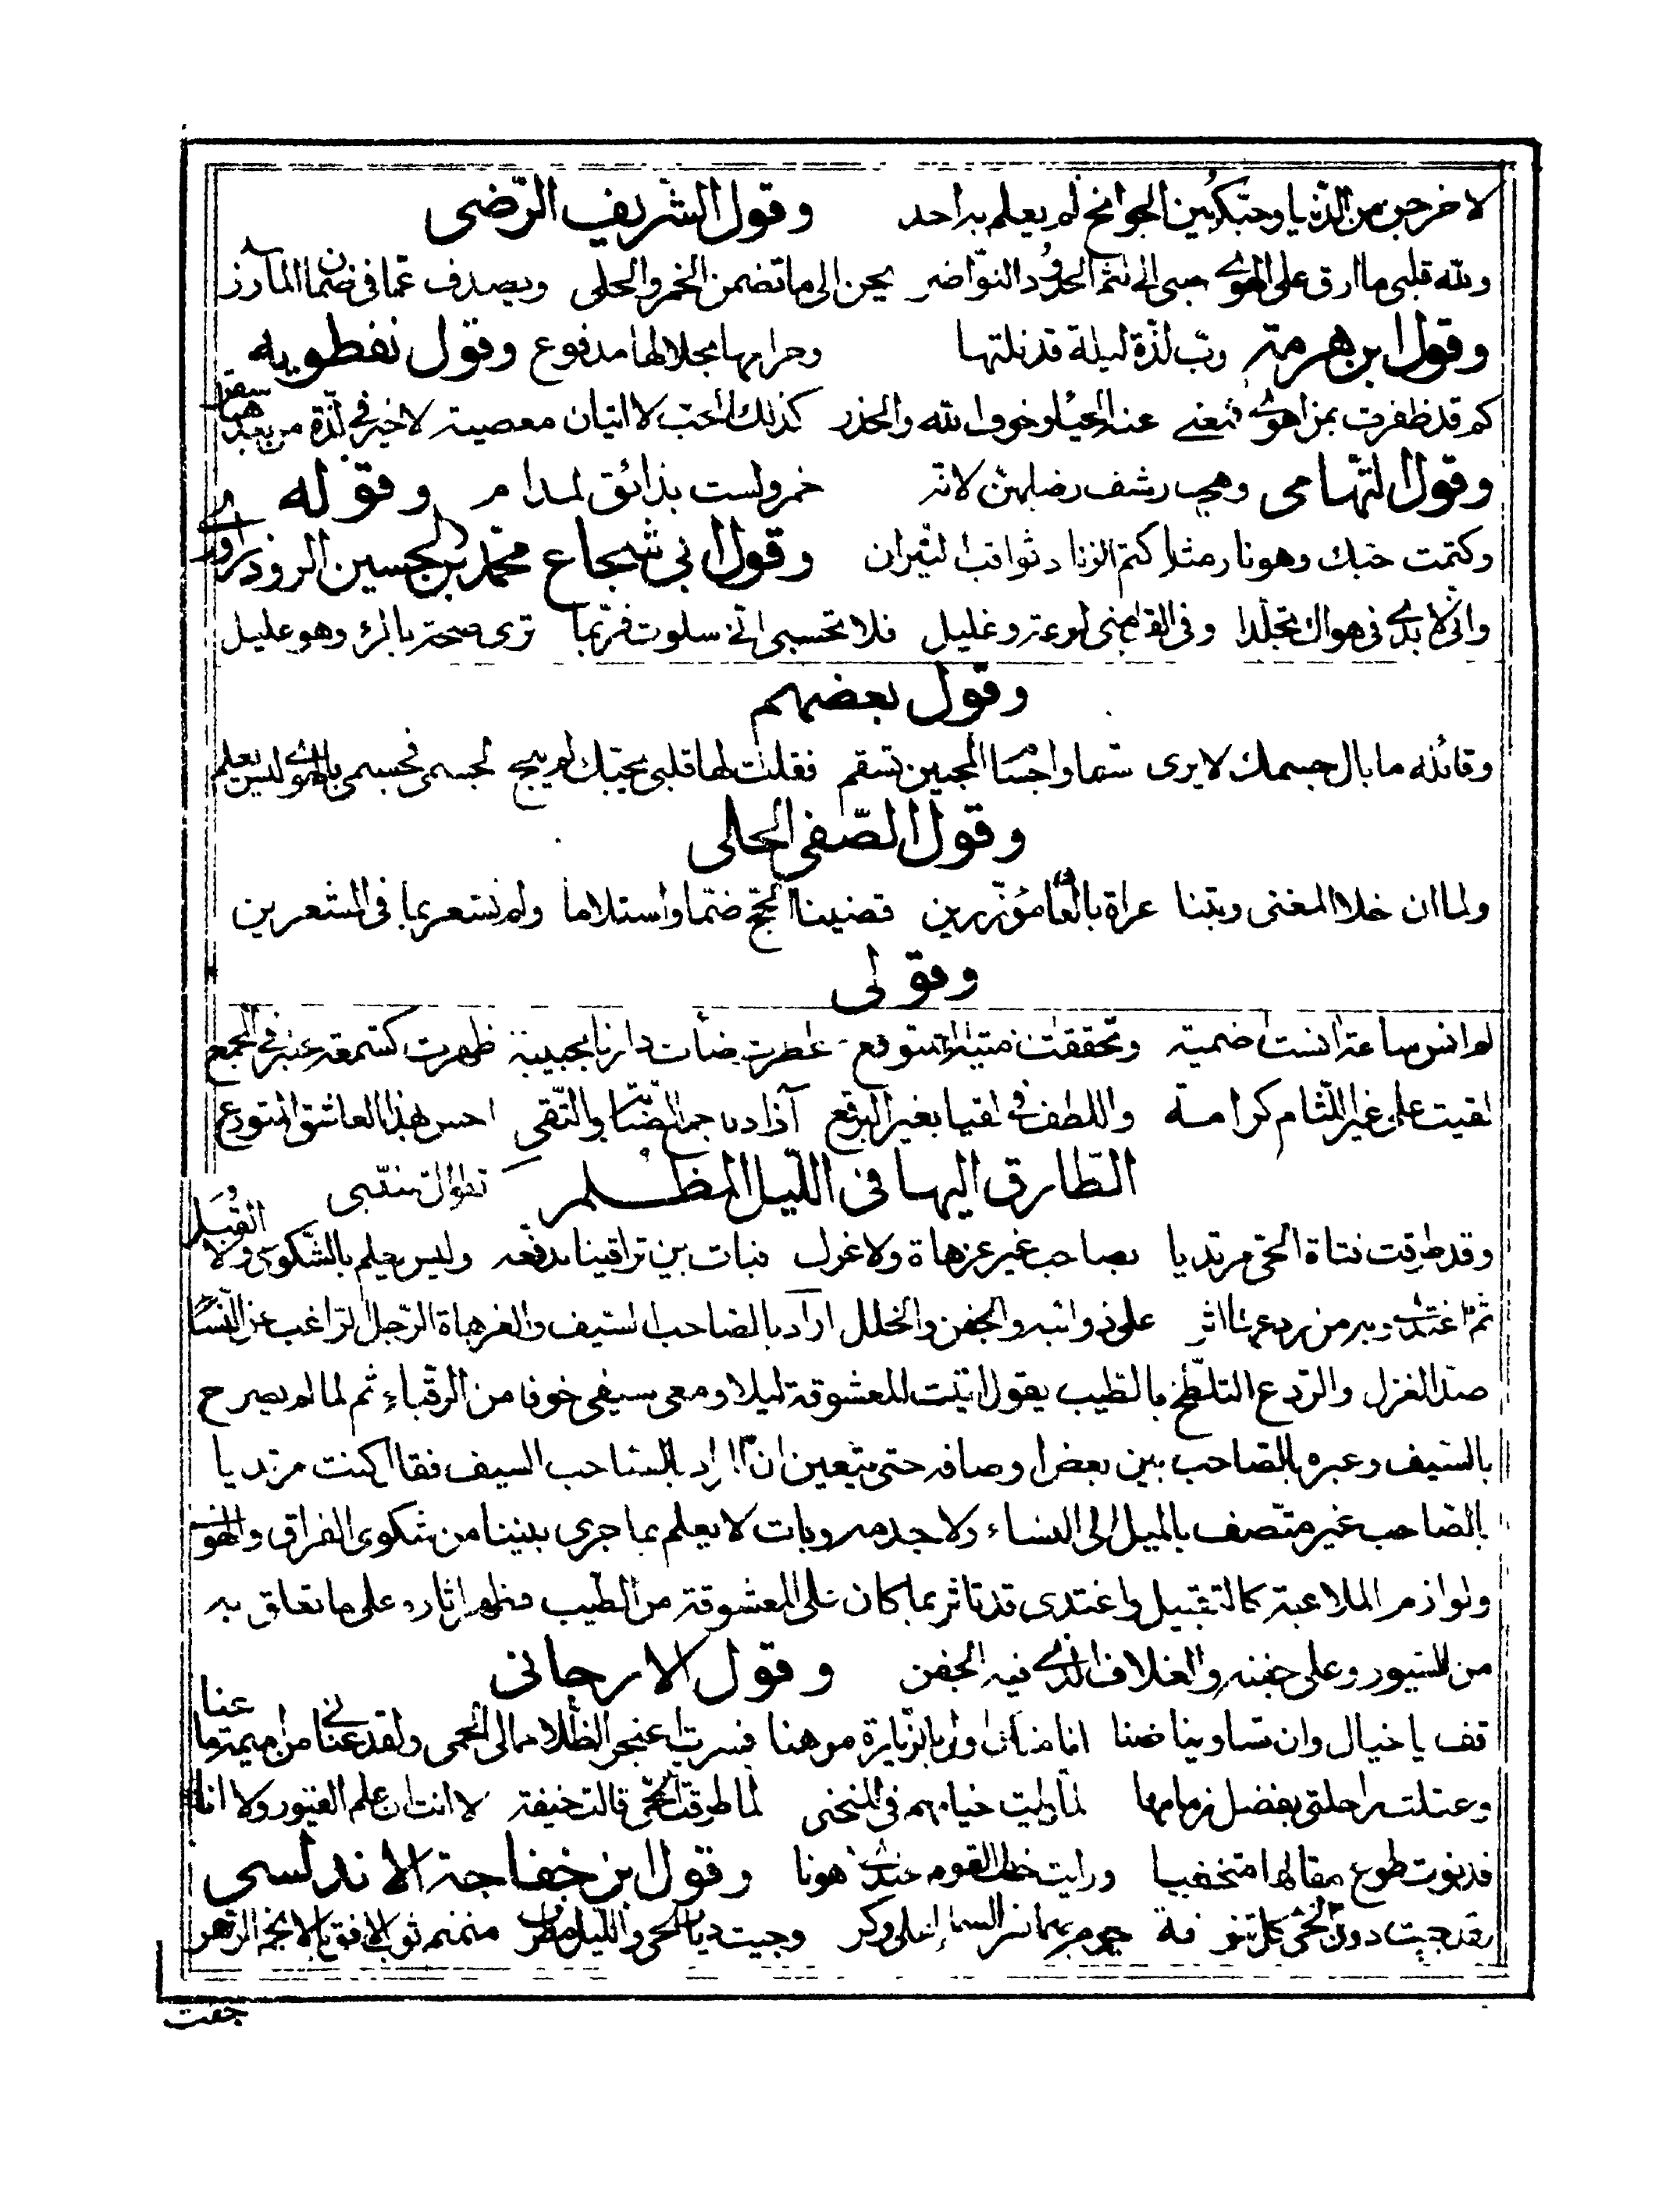 لاخرجن من الدنيا وحبكم بين الجوانح لم يعلم به احد وقول الشريف الرضى
ولله قلبى ما ارق على الهوى واصبى الى لثم الخدود النواضر يحن الى ما تضمن الخمر والحلى ويصدف عما فى ضمان المآزر
وقول ابن هرمة ورب لذة ليلة قد نلتها وحرامها بحلالها مدفوع وقول نفطويه
كم قد ظفرت بمن اهوى فيمنعنى عنه الحياء وخوف الله والحذر كذلك الحب لا اتيان معصية لا خير فى لذة من بعدها سقر
وقول التهامى وهجرت رشف رضابهن لانه خمر ولست بذائق لمدام وقوله
وكتمت حبك وهو نار مثلما كتم الزناد ثواقب النيران وقول ابى شجاع محمد بن الحسين الروذراورى
وانى لابدى فى هواك تجلدا وفى القلب منى لوعة وغليل فلا تحسبى انى سلوت فربما ترى صحة بالمرء وهو عليل
وقول بعضهم
وقائله ما بال جسمك لا يرى سقيما واجسام المحبين تسقم فقلت لها قلبى بحبك لم يبح لجسمى فجسمى بالهوى ليس يعلم
وقول الصفى الحلى
ولما ان خلا المغنى وبتنا عراة بالعفاف مؤزرين قضينا الحج ضما واستلاما ولم نشعر بما فى المشعرين
وقولى
لم انس ساعة انست اضمية وتحققت منية المتوقع عطرت دارنا بحبيبة ظهرت كشمعة عنبر فى المجمع
لقيت على غير اللثام كرامة واللطف فى لقيا بغير البرقع والتقى احسن بهذا العاشق المتورع
الطارق اليها فى الليل المظلم
وقد طرقت فتاة الحى مرتديا بصاحب غير عزهاة ولا غزل فبات بين تراقينا ندفعه وليس يعلم بالشكوى ولا القبل
ثم اغتدى وبه من ردعها اثر على ذوائبه والجفن والخلل اراد بالصاحب السيف والعزهاة الرجل الراغب عن النساء
ضد الغزل والردع التلطخ بالطيب يقول اتيت للمعشوقة ليلا ومعى سيفى خوفا من الرقباء ثم لما لم يصرح
بالسيف وعبره بالصاحب بين بعض اوصافه حتى يتعين ان المراد بالصاحب السيف فقال كنت مرتديا
بالصاحب غير متصف بالميل الى النساء ولا بعدمه وبات لا يعلم بما جرى بيننا من شكوى الفراق والهوى
ولوازم الملاعبة كالتقبيل واغتدى قد تاثر بما كان على المعشوقة من الطيب فظهر اثاره على ما تعلق به
من السيور وعلى جفنه والغلاف الذى فيه الجفن وقول الارجانى
قف يا خيال وان تساوينا ضنا انا منك اولى بالزيارة موهنا فسريت اعتجر الظلام الى الحمى ولقد عنانى من اميمة ما عنا
وعقلت راحلتى بفضل زمامها لما رايت خيامهم فى المنحنى لما طرقت الحى قالت خيفة لا انت ان علم الغيور ولا انا
فدنوت طوع مقالها متخفيا ورايت خطب القوم عندى هونا وقول ابن خفاجة الاندلسى
لقد جبت دون الحى كل تنوفة يحوم بها نسر السماء على وكر وجبت ديار الحى والليل مطرق منمنم ثوب الافق بالانجم الزهر